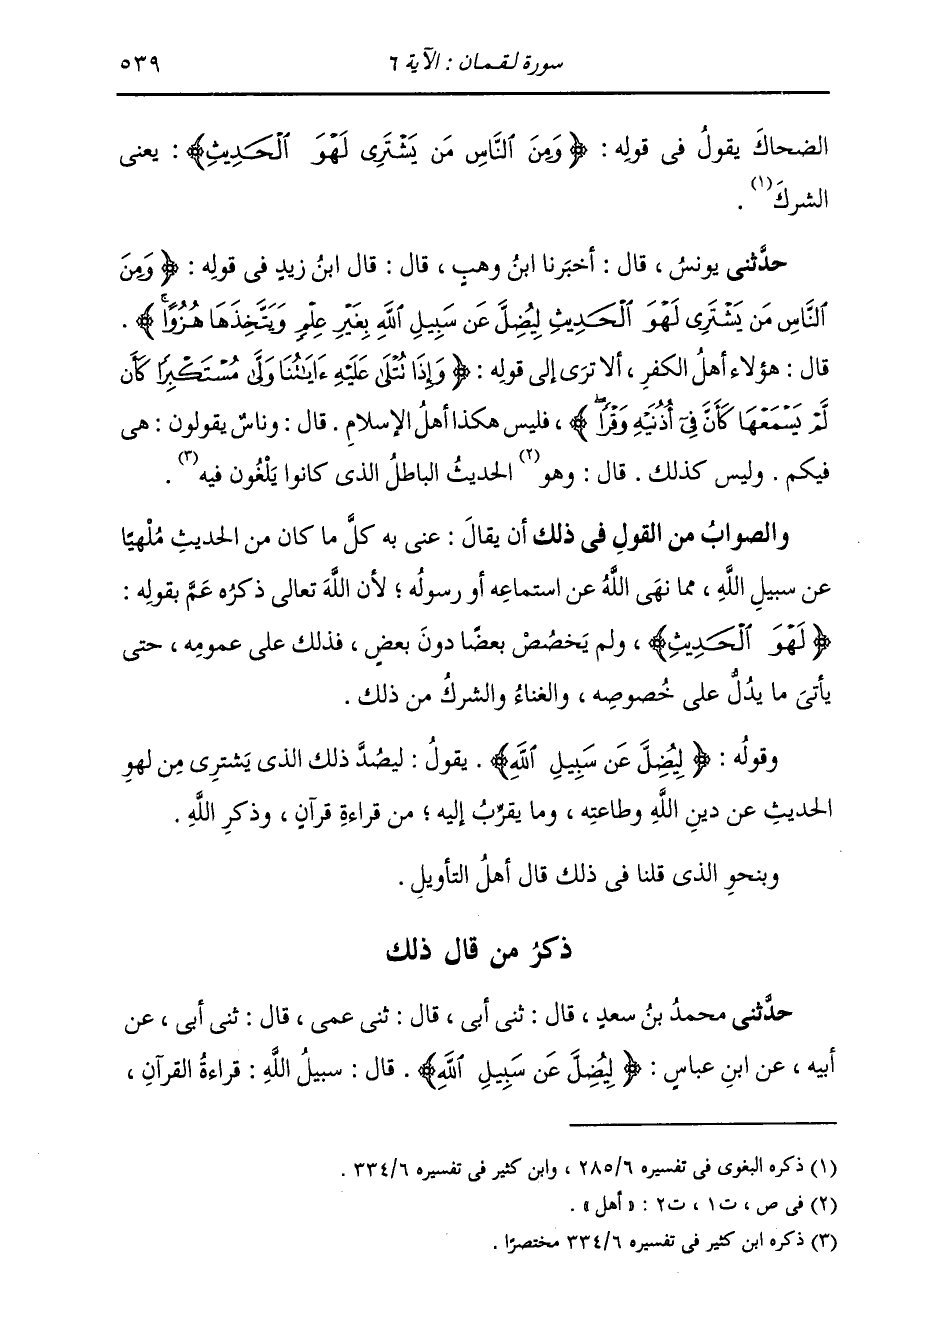 سورة لقمان : الآية ٦ ٥٣٩
الضحاكَ يقولُ فى قولِه : ﴿ وَمِنَ ٱلنَّاسِ مَن يَشْتَرِى لَهْوَ ٱلْحَدِيثِ﴾ : يعنى
الشركَ(١) .
حدَّثنى يونسُ ، قال : أخبَرنا ابنُ وهبٍ ، قال : قال ابنُ زيدٍ فى قولِه : ﴿ وَمِنَ
ٱلنَّاسِ مَن يَشْتَرِى لَهْوَ ٱلْحَدِيثِ لِيُضِلَّ عَن سَبِيلِ ٱللَّهِ بِغَيْرِ عِلْمٍ وَيَتَّخِذَهَا هُزُوًاۚ ﴾ .
قال : هؤلاء أهلُ الكفرِ ، ألا ترَى إلى قولِه : ﴿ وَإِذَا تُتْلَىٰ عَلَيْهِ ءَايَٰتُنَا وَلَّىٰ مُسْتَكْبِرًا كَأَن
لَّمْ يَسْمَعْهَا كَأَنَّ فِىٓ أُذُنَيْهِ وَقْرًاۖ ﴾ ، فليس هكذا أهلُ الإسلامِ . قال : وناسٌ يقولون : هى
فيكم . وليس كذلك . قال : وهو(٢) الحديثُ الباطلُ الذى كانوا يَلْغُون فيه(٣) .
والصوابُ من القولِ فى ذلك أن يقالَ : عنى به كلَّ ما كان من الحديثِ مُلْهيًا
عن سبيلِ اللَّهِ ، مما نهَى اللَّهُ عن استماعِه أو رسولُه ؛ لأن اللَّهَ تعالى ذكرُه عَمَّ بقولِه :
﴿ لَهْوَ ٱلْحَدِيثِ﴾ ، ولم يَخصُصْ بعضًا دونَ بعضٍ ، فذلك على عمومِه ، حتى
يأتىَ ما يدُلُّ على خُصوصِه ، والغناءُ والشركُ من ذلك .
وقولُه : ﴿ لِيُضِلَّ عَن سَبِيلِ ٱللَّهِ﴾ . يقولُ : ليصُدَّ ذلك الذى يَشترِى مِن لهوِ
الحديثِ عن دينِ اللَّهِ وطاعتِه ، وما يقرِّبُ إليه ؛ من قراءةِ قرآنٍ ، وذكرِ اللَّهِ .
وبنحوِ الذى قلنا فى ذلك قال أهلُ التأويلِ .
ذكرُ من قال ذلك
حدَّثنى محمدُ بنُ سعدٍ ، قال : ثنى أبى ، قال : ثنى عمى ، قال : ثنى أبى ، عن
أبيه ، عن ابنِ عباسٍ : ﴿ لِيُضِلَّ عَن سَبِيلِ ٱللَّهِ﴾ . قال : سبيلُ اللَّهِ : قراءةُ القرآنِ ،
(١) ذكره البغوى فى تفسيره ٢٨٥/٦ ، وابن كثير فى تفسيره ٣٣٤/٦ .
(٢) فى ص ، ت١ ، ت٢ : « أهل » .
(٣) ذكره ابن كثير فى تفسيره ٣٣٤/٦ مختصرًا .